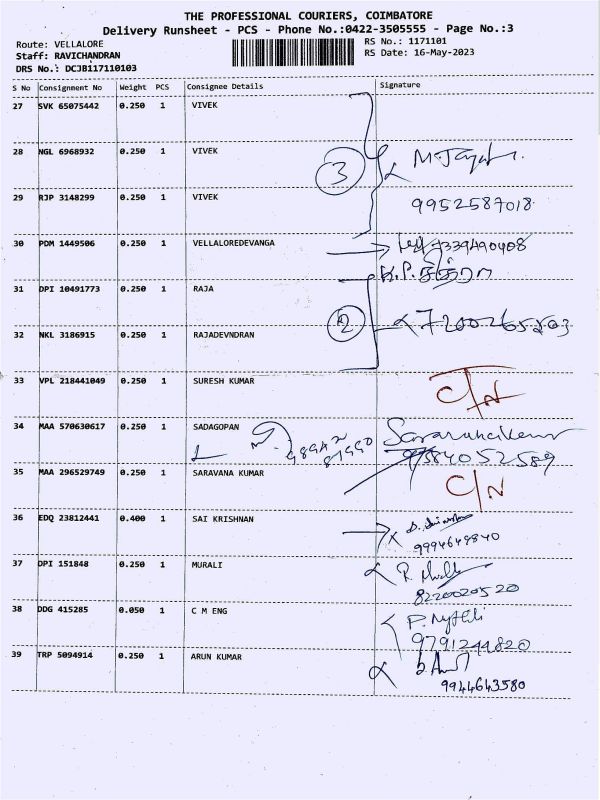 THE PROFESSIONAL COURIERS, COIMBATORE
Delivery Runsheet - PCS - Phone No.:0422-3505555 - Page No.:3
Route: VELLALORE
Staff: RAVICHANDRAN
DRS No.: DCJB117110103
RS No.: 1171101
RS Date: 16-May-2023
S No Consignment No Weight PCS Consignee Details Signature
27 SVK 65075442 0.250 1 VIVEK
28 NGL 6968932 0.250 1 VIVEK
3
29 RJP 3148299 0.250 1 VIVEK 9952587018
30 PDM 1449506 0.250 1 VELLALOREDEVANGA
31 DPI 10491773 0.250 1 RAJA
32 NKL 3186915 0.250 1 RAJADEVNDRAN 2 7200265203
33 VPL 218441049 0.250 1 SURESH KUMAR C/N
34 MAA 570630617 0.250 1 SADAGOPAN
9384052589
35 MAA 296529749 0.250 1 SARAVANA KUMAR C/N
36 EDQ 23812441 0.400 1 SAI KRISHNAN
9994649840
37 DPI 151848 0.250 1 MURALI
8220020520
38 DDG 415285 0.050 1 C M ENG
9791244820
39 TRP 5094914 0.250 1 ARUN KUMAR
9944643580